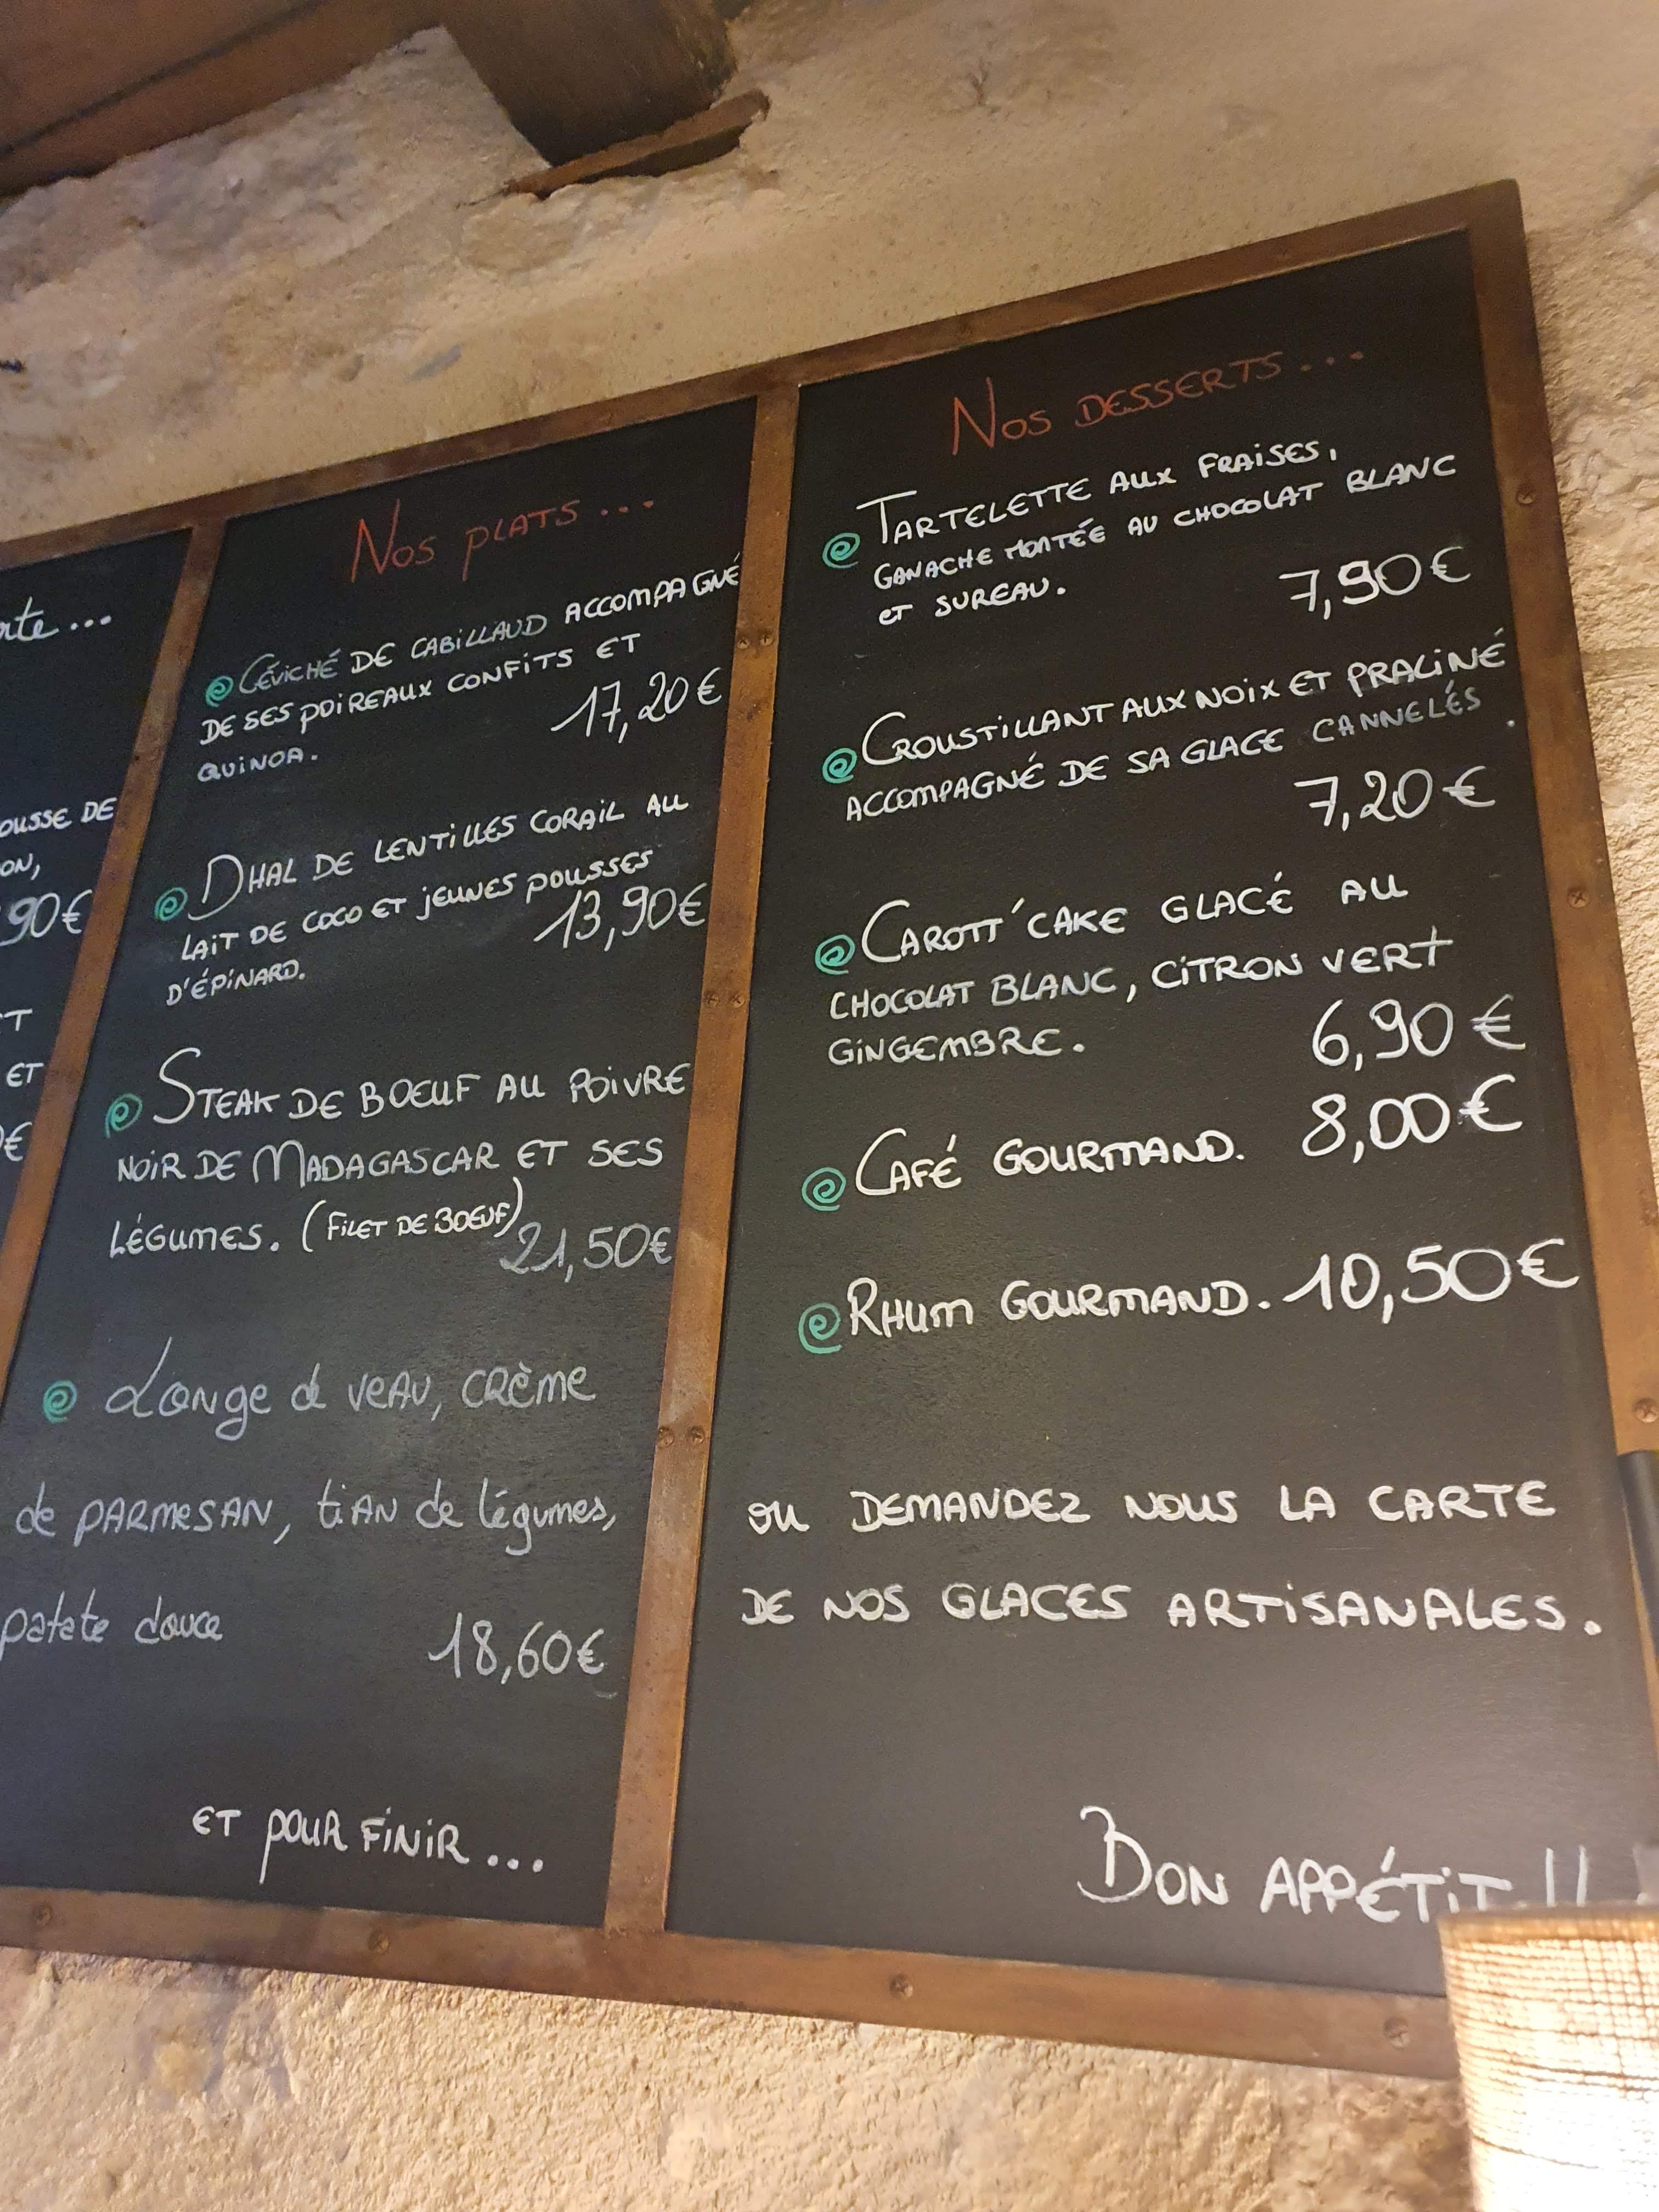 rte...
OUSSE DE
ON,
90€
T
ET
€
Nos plats...
@ Céviché de cabillaud accompagné
de ses poireaux confits et
quinoa. 17,20€
@ Dhal de lentilles corail au
lait de coco et jeunes pousses
d'épinard. 13,90€
@ Steak de boeuf au poivre
noir de Madagascar et ses
légumes. (Filet de boeuf)
21,50€
@ Longe de veau, crème
de parmesan, tian de légumes,
patate douce 18,60€
et pour finir...
Nos desserts...
@ Tartelette aux fraises,
ganache montée au chocolat blanc
et sureau. 7,90€
@ Croustillant aux noix et praliné
accompagné de sa glace cannelés.
7,20€
@ Carott'cake glacé au
chocolat blanc, citron vert
gingembre. 6,90€
@ Café gourmand. 8,00€
@ Rhum gourmand. 10,50€
ou demandez nous la carte
de nos glaces artisanales.
Bon appétit !!